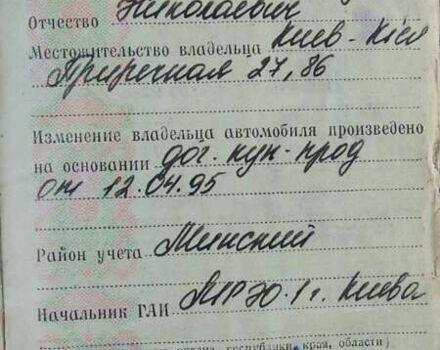 Отчество Николаевич
Местожительство владельца Киев-
Приречная 27, 86
Изменение владельца автомобиля произведено
на основании дог. куп-прод
от 12.04.95
Район учета Минский
Начальник ГАИ МРЭО-1 г. Киева
республики, края, области)